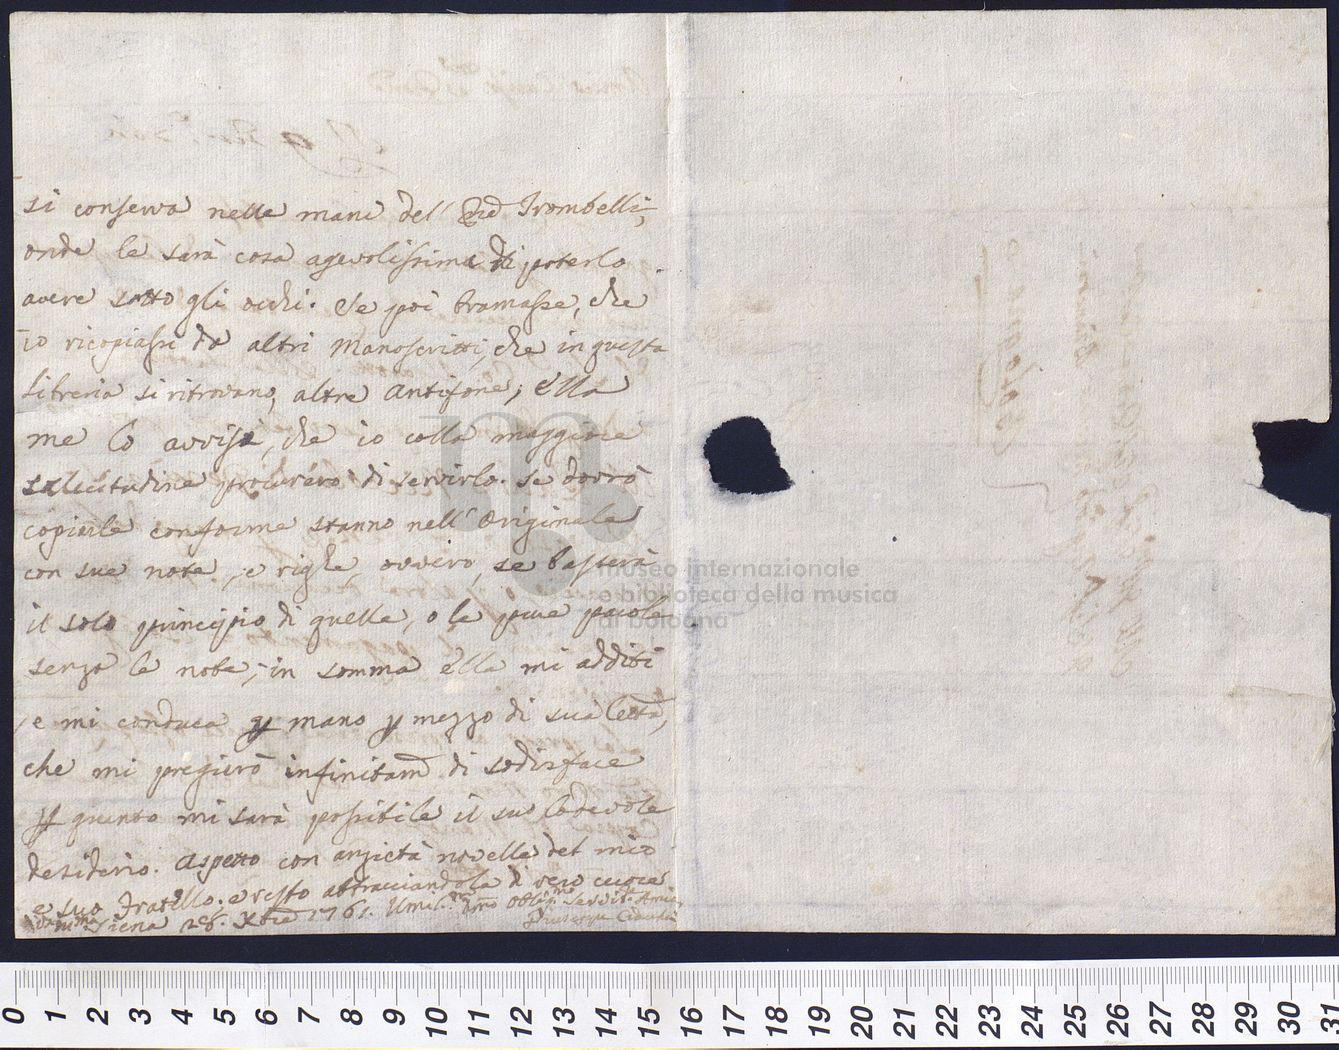 si conserva nelle mani del Pre Trombelli,
onde le sarà cosa agevolissima di poterlo
avere sotto gli occhi. Se poi bramasse, che
io ricopiassi da altri Manoscritti, che in questa
libreria si ritrovano, altre Antifone, ella
me lo avvisi, che io colla maggiore
sollecitudine procurerò di servirlo. se dovrò
copiarle conforme stanno nell' Originale
con sue note, e righe, ovvero, se basterà
il solo principio di quelle, o le pure parole
senza le note; in somma ella mi additi
e mi conduca per mano per mezzo di sua Lettra,
che mi pregierò infinitamte di sodisfare
per quanto mi sarà possibile il suo lodevole
desiderio. Aspetto con anzietà novelle del mio
e suo Fratello. e resto abbracciandola di vero cuore
Siena 28. Xbre 1761. Umilmo Obligmo Servite Amico
Giuseppe
museo internazionale
e biblioteca della musica
di bologna
0 1 2 3 4 5 6 7 8 9 10 11 12 13 14 15 16 17 18 19 20 21 22 23 24 25 26 27 28 29 30 31